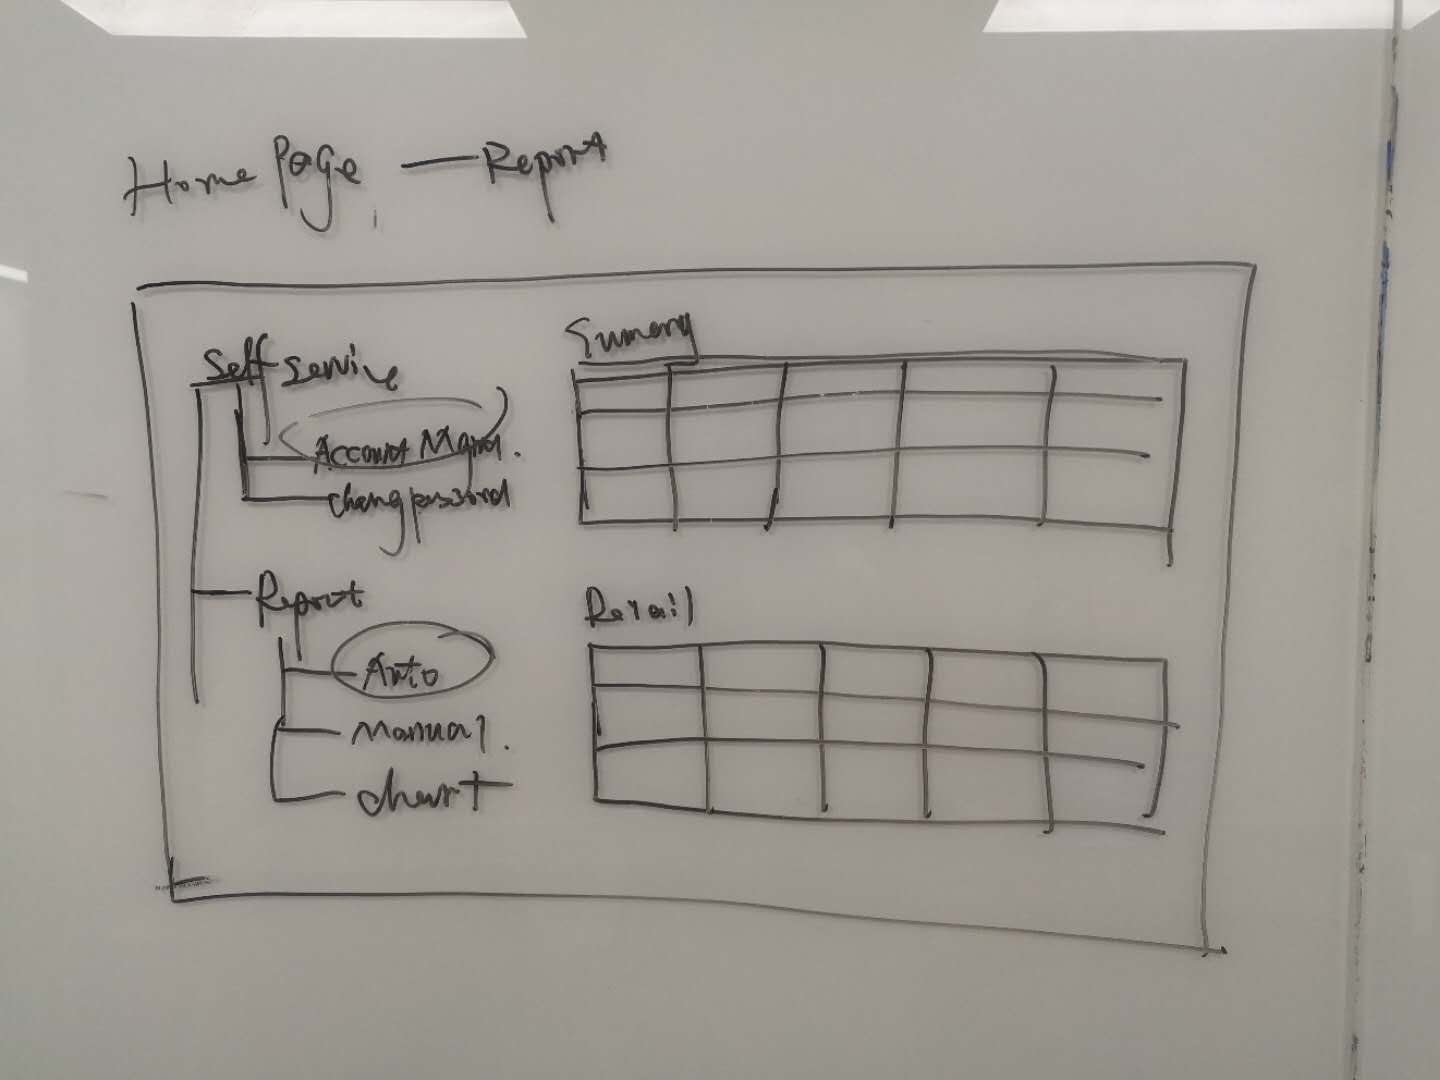 Home Page — Report
Self Service
Account Mgmt.
Chang password
Report
Auto
Manual.
chart
Summary
Detail